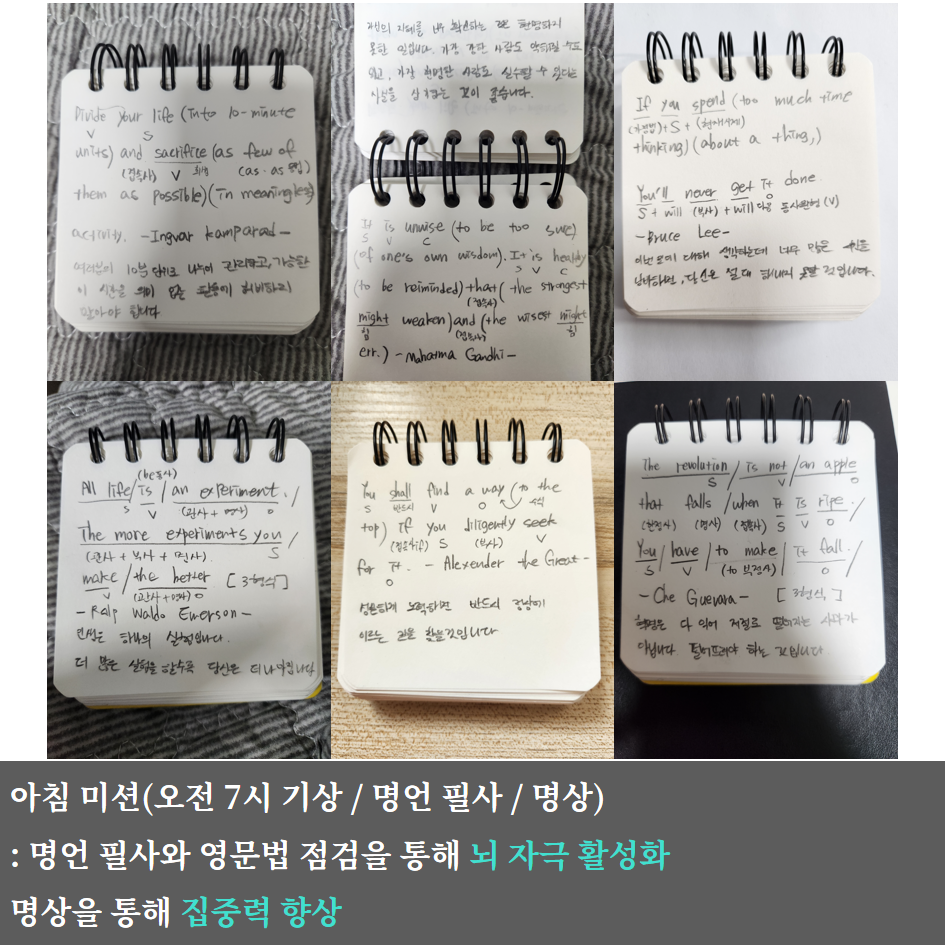 Divide your life (into 10-minute
V S
units) and sacrifice (as few of
(접속사) V 희생 (as·as 용법)
them as possible)(in meaningless
activity. -Ingvar kamparad-
여러분이 10분 단위로 나누어 관리하고, 가능한
이 시간을 의미 없는 활동에 허비하지
말아야 합니다
자신의 지혜를 너무 확신하는 것은 현명하지
못한 일입니다. 가장 강한 사람도 약해질 수도
있고, 가장 현명한 사람도 실수할 수 있다는
사실을 상기하는 것이 좋습니다.
It is unwise (to be too sure)
S V C
(of one's own wisdom). It is healthy
S V C
(to be reiminded) that (the strongest
(접속사)
might weaken) and (the wisest might
힘 (접속사) 힘
err.) -Mahatma Gandhi-
If you spend (too much time
(가정법)+S+(현재시제)
thinking) (about a thing,)
You'll never get it done.
O
S + will (부사) + will 다음 동사원형 (V)
-Bruce Lee-
어떤 것에 대해 생각하는데 너무 많은 시간을
낭비하면, 당신은 절대 해내지 못할 것입니다.
(be동사)
All life / is / an experiment. /
S V (관사 + 명사) O
The more experiments you /
(관사 + 부사 + 명사) S
make / the better [3형식]
V (관사+명사) O
-Ralp Waldo Emerson-
인생은 하나의 실험입니다.
더 많은 실험을 할수록 당신은 더 나아집니다
You shall find a way (to the
S 반드시 V O 수식
top) if you diligently seek
(접속사if) S (부사) V
for it. - Alexender the Great-
O
성실하게 노력하면 반드시 정상에
이르는 길을 찾을것입니다
The revolution / is not / an apple
S V O
that falls / when it is ripe. /
(한정사) (명사) (접속사) S V O
You / have / to make / it fall. /
S V (to 부정사) O
-Che Guevara- [3형식]
혁명은 다 익어 저절로 떨어지는 사과가
아닙니다 떨어뜨려야 하는 것입니다
아침 미션(오전 7시 기상 / 명언 필사 / 명상)
: 명언 필사와 영문법 점검을 통해 뇌 자극 활성화
명상을 통해 집중력 향상